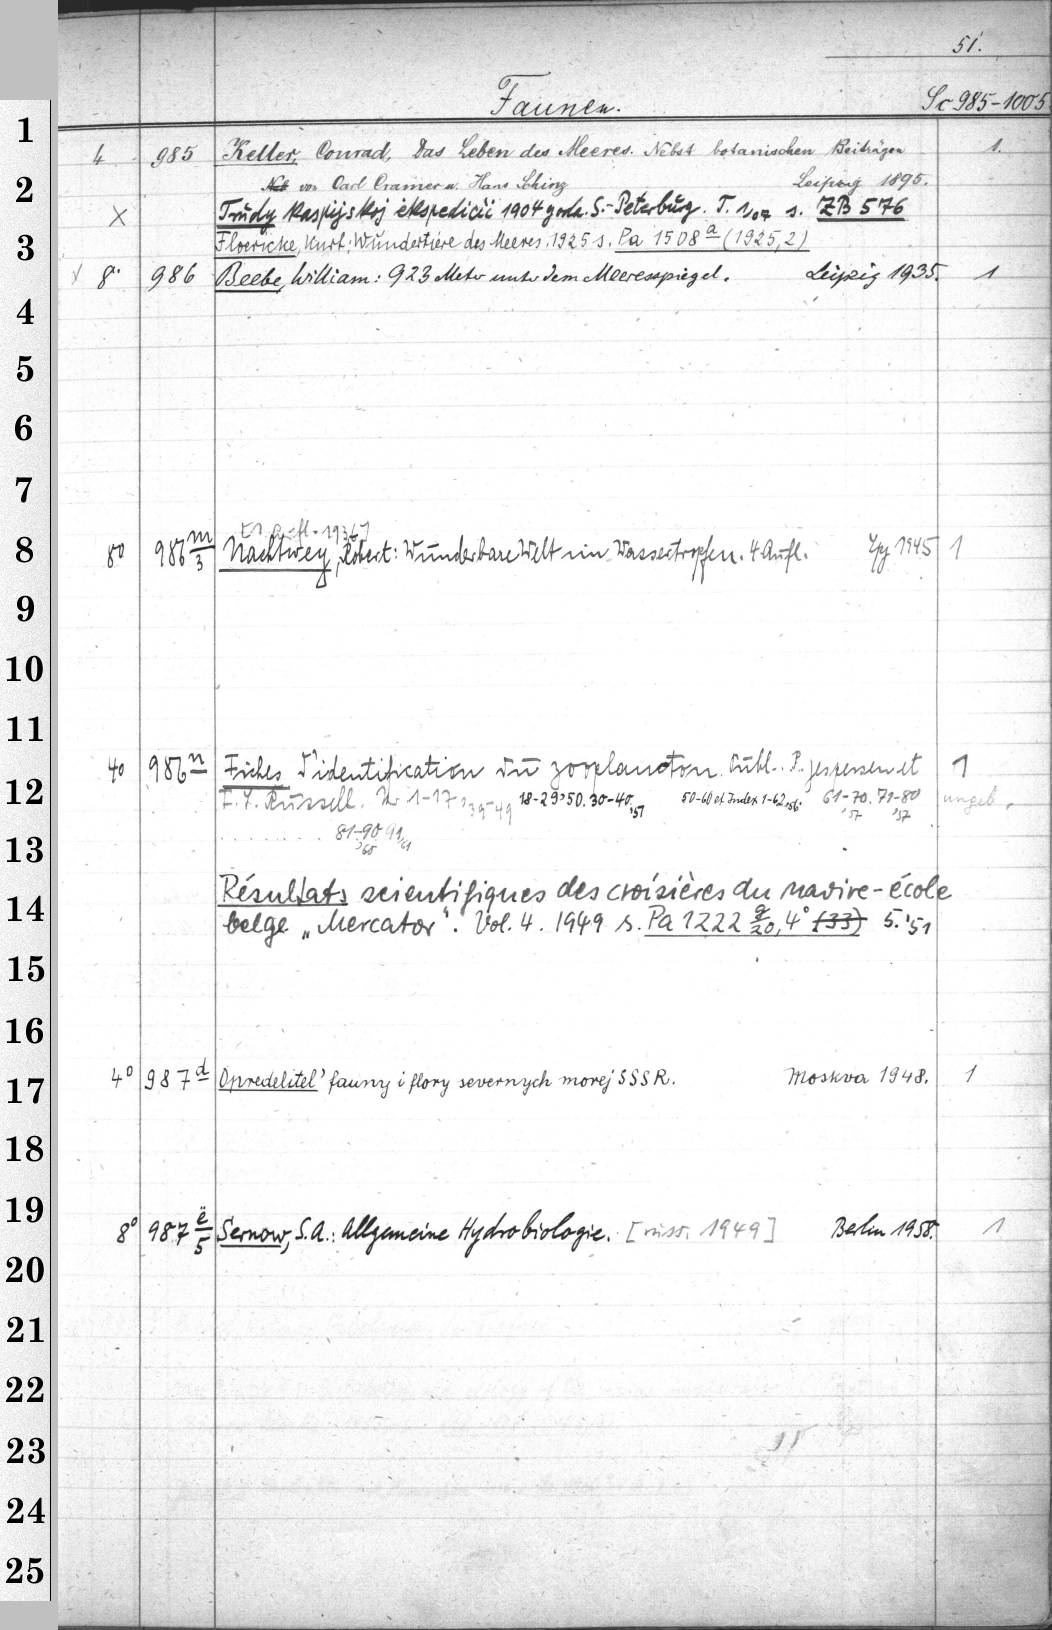 51.
Faunen. Sc 985-1005
1
4 985 Keller, Conrad, Das Leben des Meeres. Nebst botanischen Beiträgen 1.
2
von Carl Cramer u. Hans Schinz Leipzig 1895.
X Trudy kaspijskoj ekspedicii 1904 goda. S.-Peterburg. T. 1,07 s. ZB 576
3
Floericke, Kurt: Wundertiere des Meeres. 1925 s. Pa 1508 a (1925,2)
8° 986 Beebe, William: 923 Meter unter dem Meeresspiegel. Leipzig 1935. 1
4
5
6
7
[1. Aufl. 1936]
8
8° 986 m/3 Nachtwey, Robert: Wunderbare Welt im Wassertropfen. 4 Aufl. Lpz 1945 1
9
10
11
4° 986 n Fiches d'identification du zooplancton. Publ. P. Jespersen et 1
12
F. S. Russell. Nr 1-17, 39-49 18-29,50. 30-40,'51 50-60 et Index 1-62,'56. 61-70,'57 71-80,'57 ungeb.
81-90,'60 91,'61
13
Résultats scientifiques des croisières du navire-école
14
belge „Mercator". Vol. 4. 1949 s. Pa 1222 g/20, 4° (33) 5.'51
15
16
4° 987 d Opredelitel' fauny i flory severnych morej SSSR. Moskva 1948. 1
17
18
19
8° 987 e/5 Sernow, S.A.: Allgemeine Hydrobiologie. [russ. 1949] Berlin 1958. 1
20
21
22
23
24
25